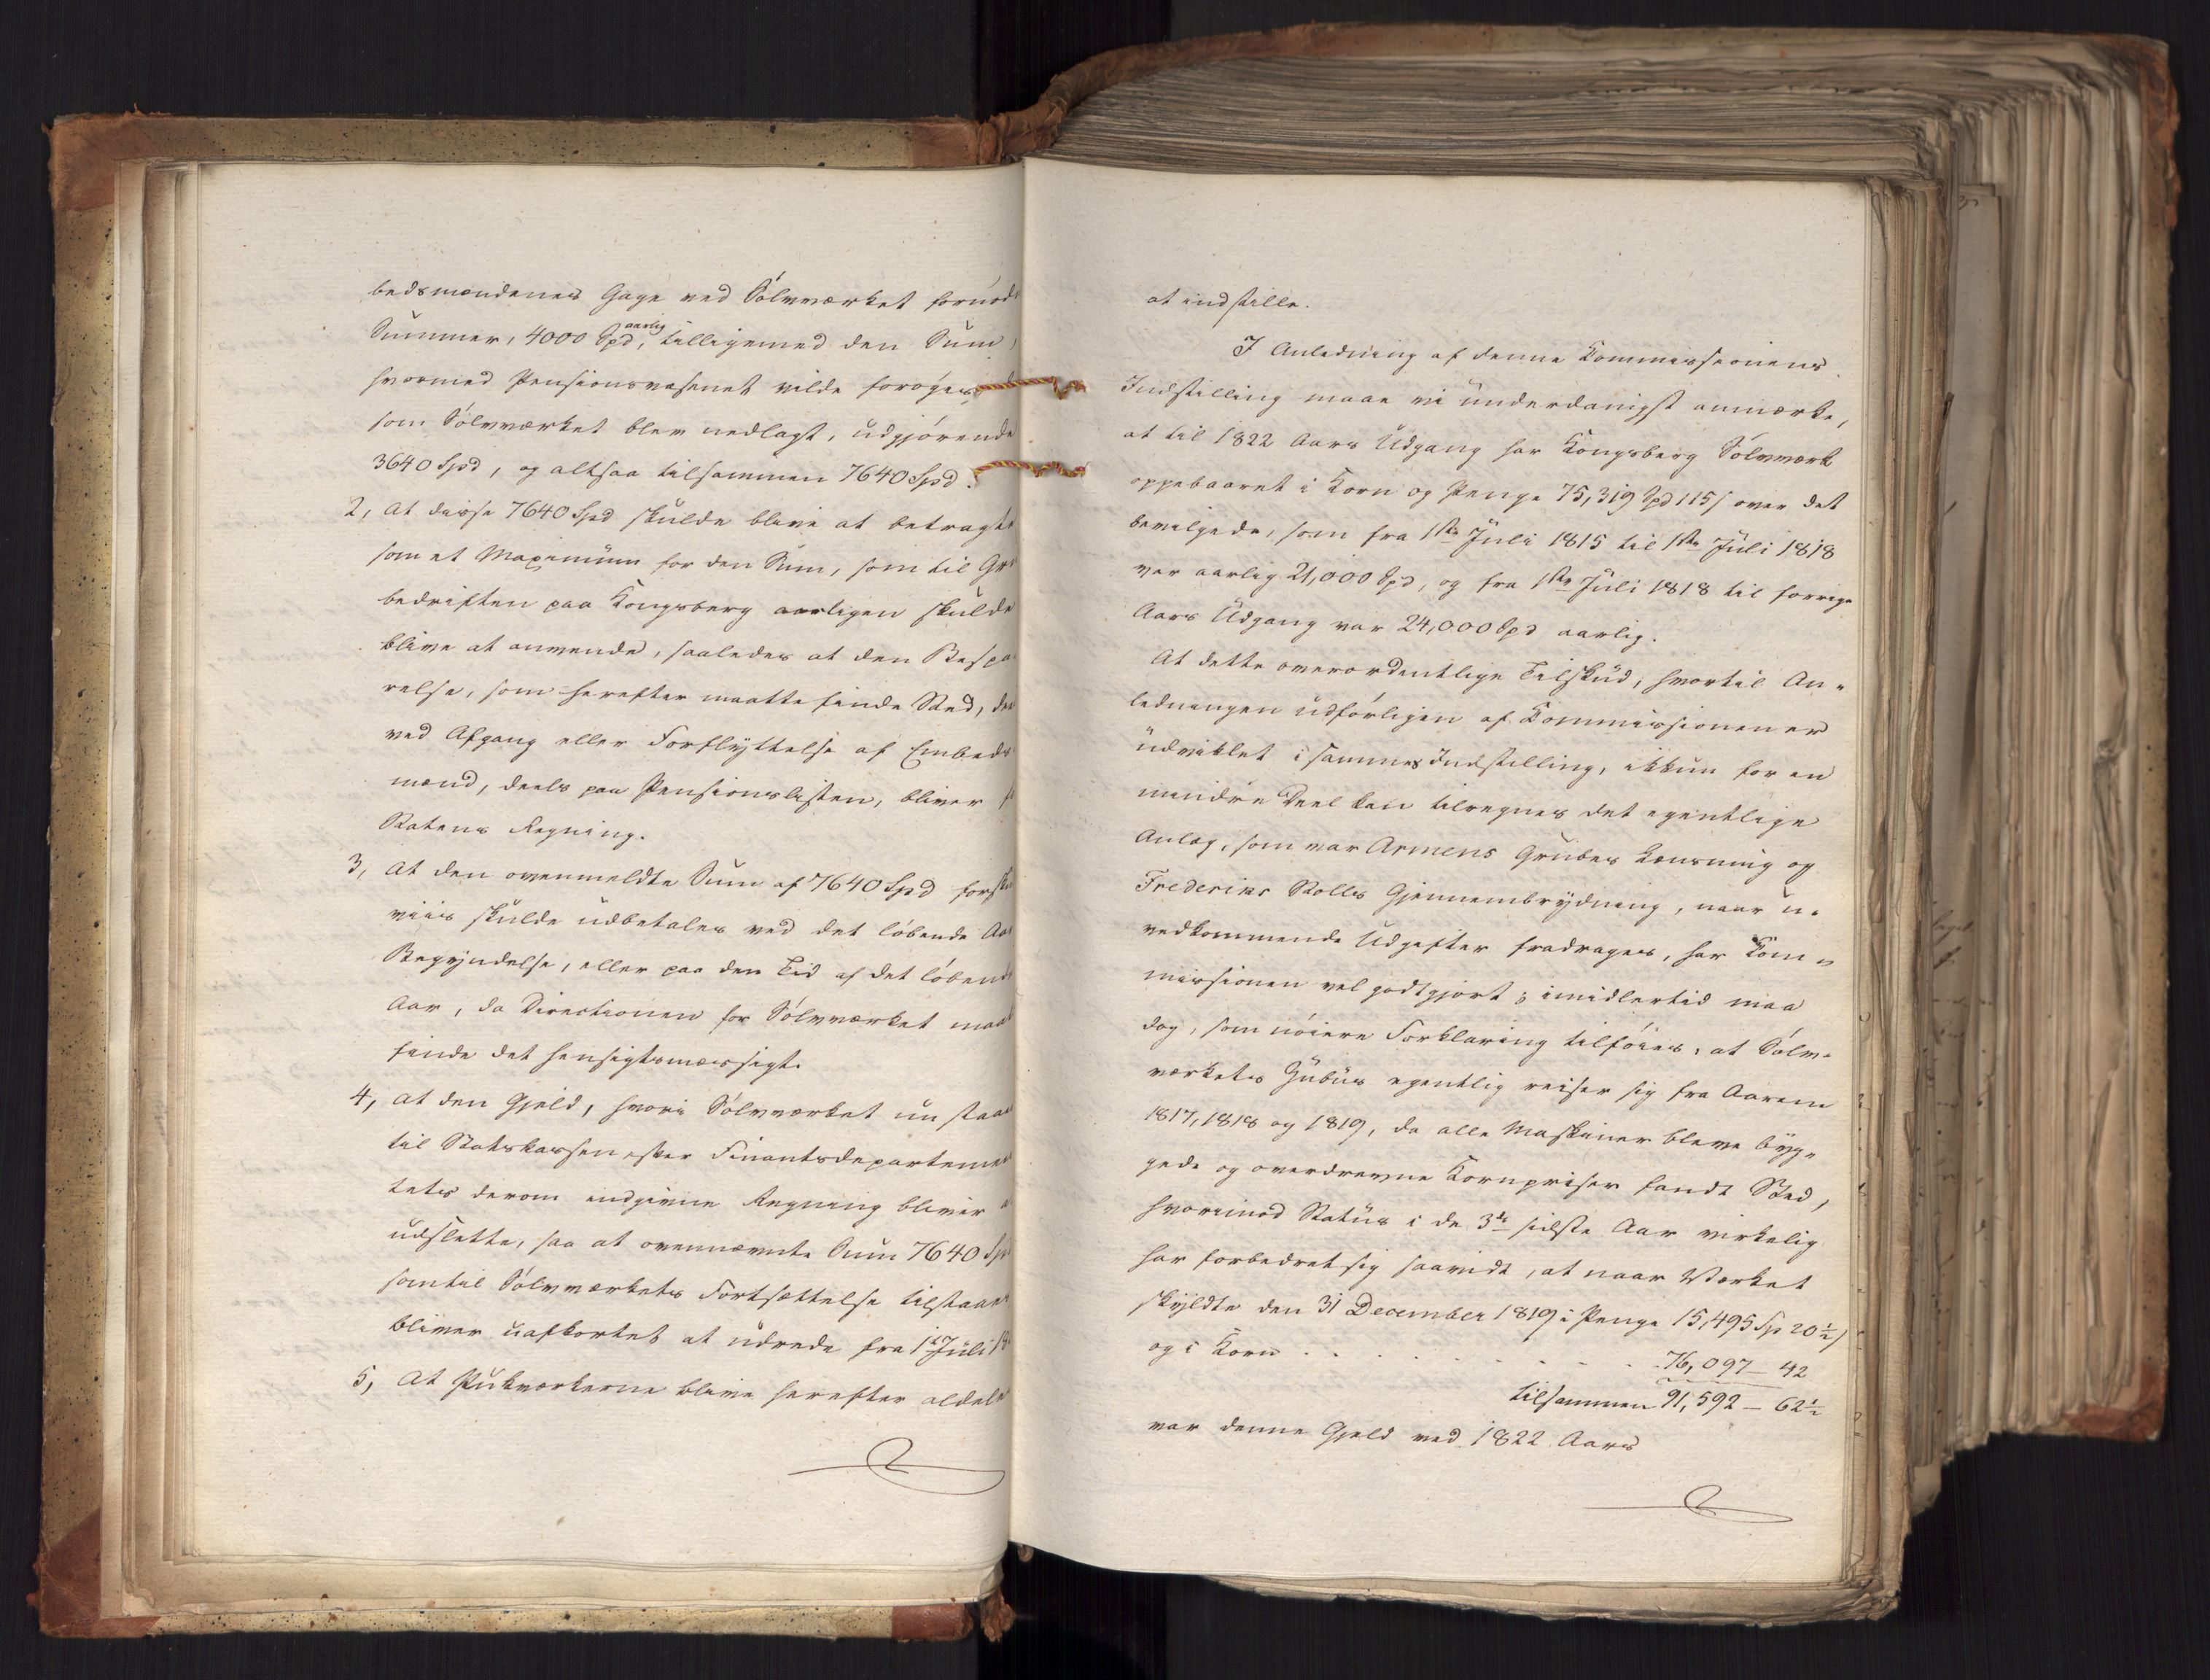 bedsmændenes Gage ved Sølvværket fornødne
Summer, 4000 Spd aarlig, tilligemed den Sum,
hvormed Pensionsvæsenet vilde forøges
som Sølvværket blev nedlagt, udgjørende
3640 Spd, og altsaa tilsammen 7640 Spd.
2, At disse 7640 Spd skulde blive at betragte
som et Maximum for den Sum, som til Gru
bedriften paa Kongsberg aarligen skulde
blive at anvende, saaledes at den Bespa
relse, som herefter maatte finde Sted, deels
ved Afgang eller Forflyttelse af Embeds
mænd, deels paa Pensionslisten, bliver for
Statens Regning.
3, At den ovenmeldte Sum af 7640 Spd forskuds
viis skulde udbetales ved det løbende Aars
Begyndelse, eller paa den Tid af det løbende
Aar, da Directionen for Sølvværket maatte
finde det hensigtsmæssigt.
4, At den Gjeld, hvori Sølvværket nu staaer
til Statskassen efter Finantsdepartemen
tets derom indgivne Regning bliver at
udslette, saa at ovennævnte Sum 7640 Spd
som til Sølvværkets Fortsættelse tilstaaes
bliver uafkortet at udrede fra 1 Juli 18
5, At Pukværkerne blive herefter aldeles
at indstille.
I Anledning af denne Kommissionens
Indstilling maae vi underdanigst anmærke,
at til 1822 Aars Udgang har Kongsberg Sølvværk
oppebaaret i Korn og Penge 75,319 Spd 115 s over det
bevilgede, som fra 1ste Juli 1815 til 1ste Juli 1818
var aarlig 21,000 Spd, og fra 1ste Juli 1818 til forrige
Aars Udgang var 24,000 Spd aarlig.
At dette overordentlige Tilskud, hvortil An-
ledningen udførligen af Kommissionen er
udviklet i sammes Indstilling, ikkun for en
mindre Deel kan tilregnes det egentlige
Anlæg, som var Armens Grubes Lænsning og
Frederiks Stolls Gjennembrydning, naar u-
vedkommende Udgifter fradrages, har Kom-
missionen vel godtgjort; imidlertid maa
dog, som nøiere Forklaring tilføies, at Sølv-
værkets Zubus egentlig reiser sig fra Aarene
1817, 1818 og 1819, da alle Maskiner bleve byg-
gede og overdrevne Kornpriser fandt Sted,
hvorimod Status i de 3de sidste Aar virkelig
har forbedret sig saavidt, at naar Værket
skyldte den 31 December 1819 i Penge 15,495 Sp 20½ s
og i Korn . . . . . . . . 76,097 – 42
tilsammen 91,592 – 62½
var denne Gjeld ved 1822 Aars